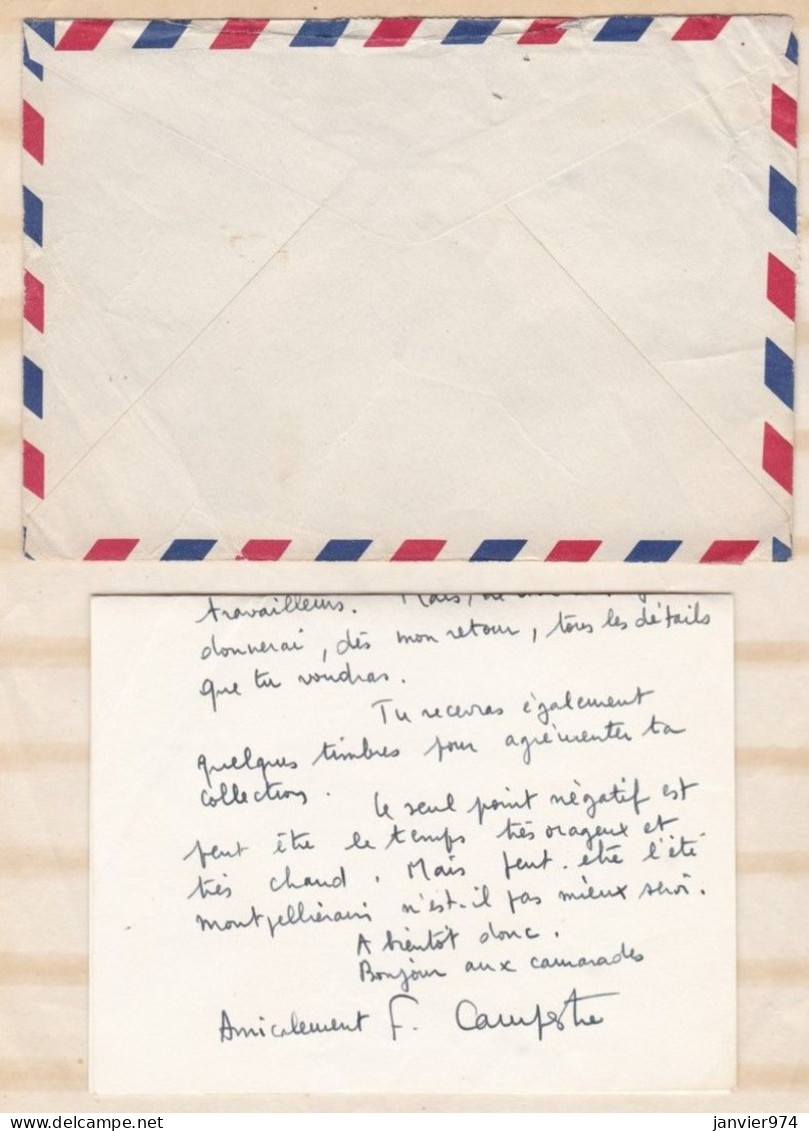 travailleurs. Mais,
donnerai, dès mon retour, tous les détails
que tu voudras.
Tu recevras également
quelques timbres pour agrémenter ta
collection. Le seul point négatif est
peut être le temps très orageux et
très chaud. Mais peut-etre l'été
montpelliérain n'est-il pas mieux servi.
A bientôt donc.
Bonjour aux camarades
Amicalement F. Campestre
janvier974